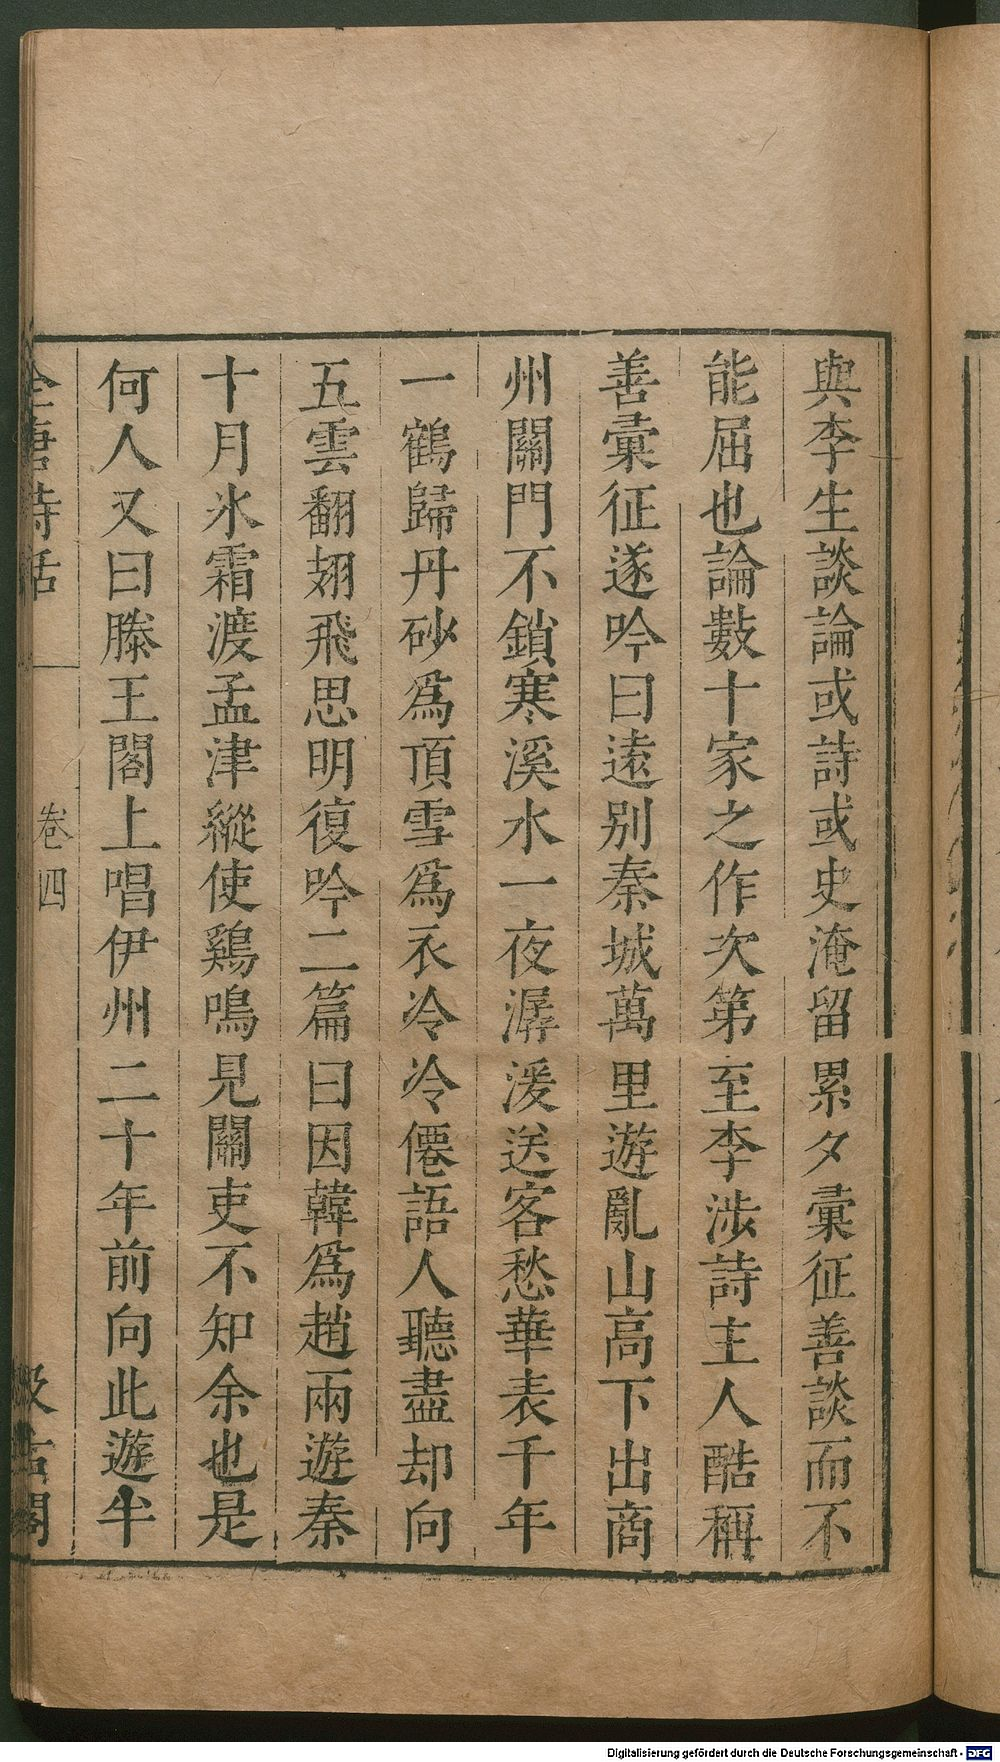 與李生談論或詩或史淹留累夕彙征善談而不
能屈也論數十家之作次第至李涉詩主人酷稱
善彙征遂吟曰遠別秦城萬里遊亂山高下出商
州關門不鎖寒溪水一夜潺湲送客愁華表千年
一鶴歸丹砂爲頂雪爲衣冷冷僊語人聽盡却向
五雲翻翅飛思明復吟二篇曰因韓爲趙兩遊秦
十月氷霜渡孟津縱使鷄鳴見關吏不知余也是
何人又曰滕王閣上唱伊州二十年前向此遊半
全唐詩話 卷四 汲古閣
Digitalisierung gefördert durch die Deutsche Forschungsgemeinschaft - DFG